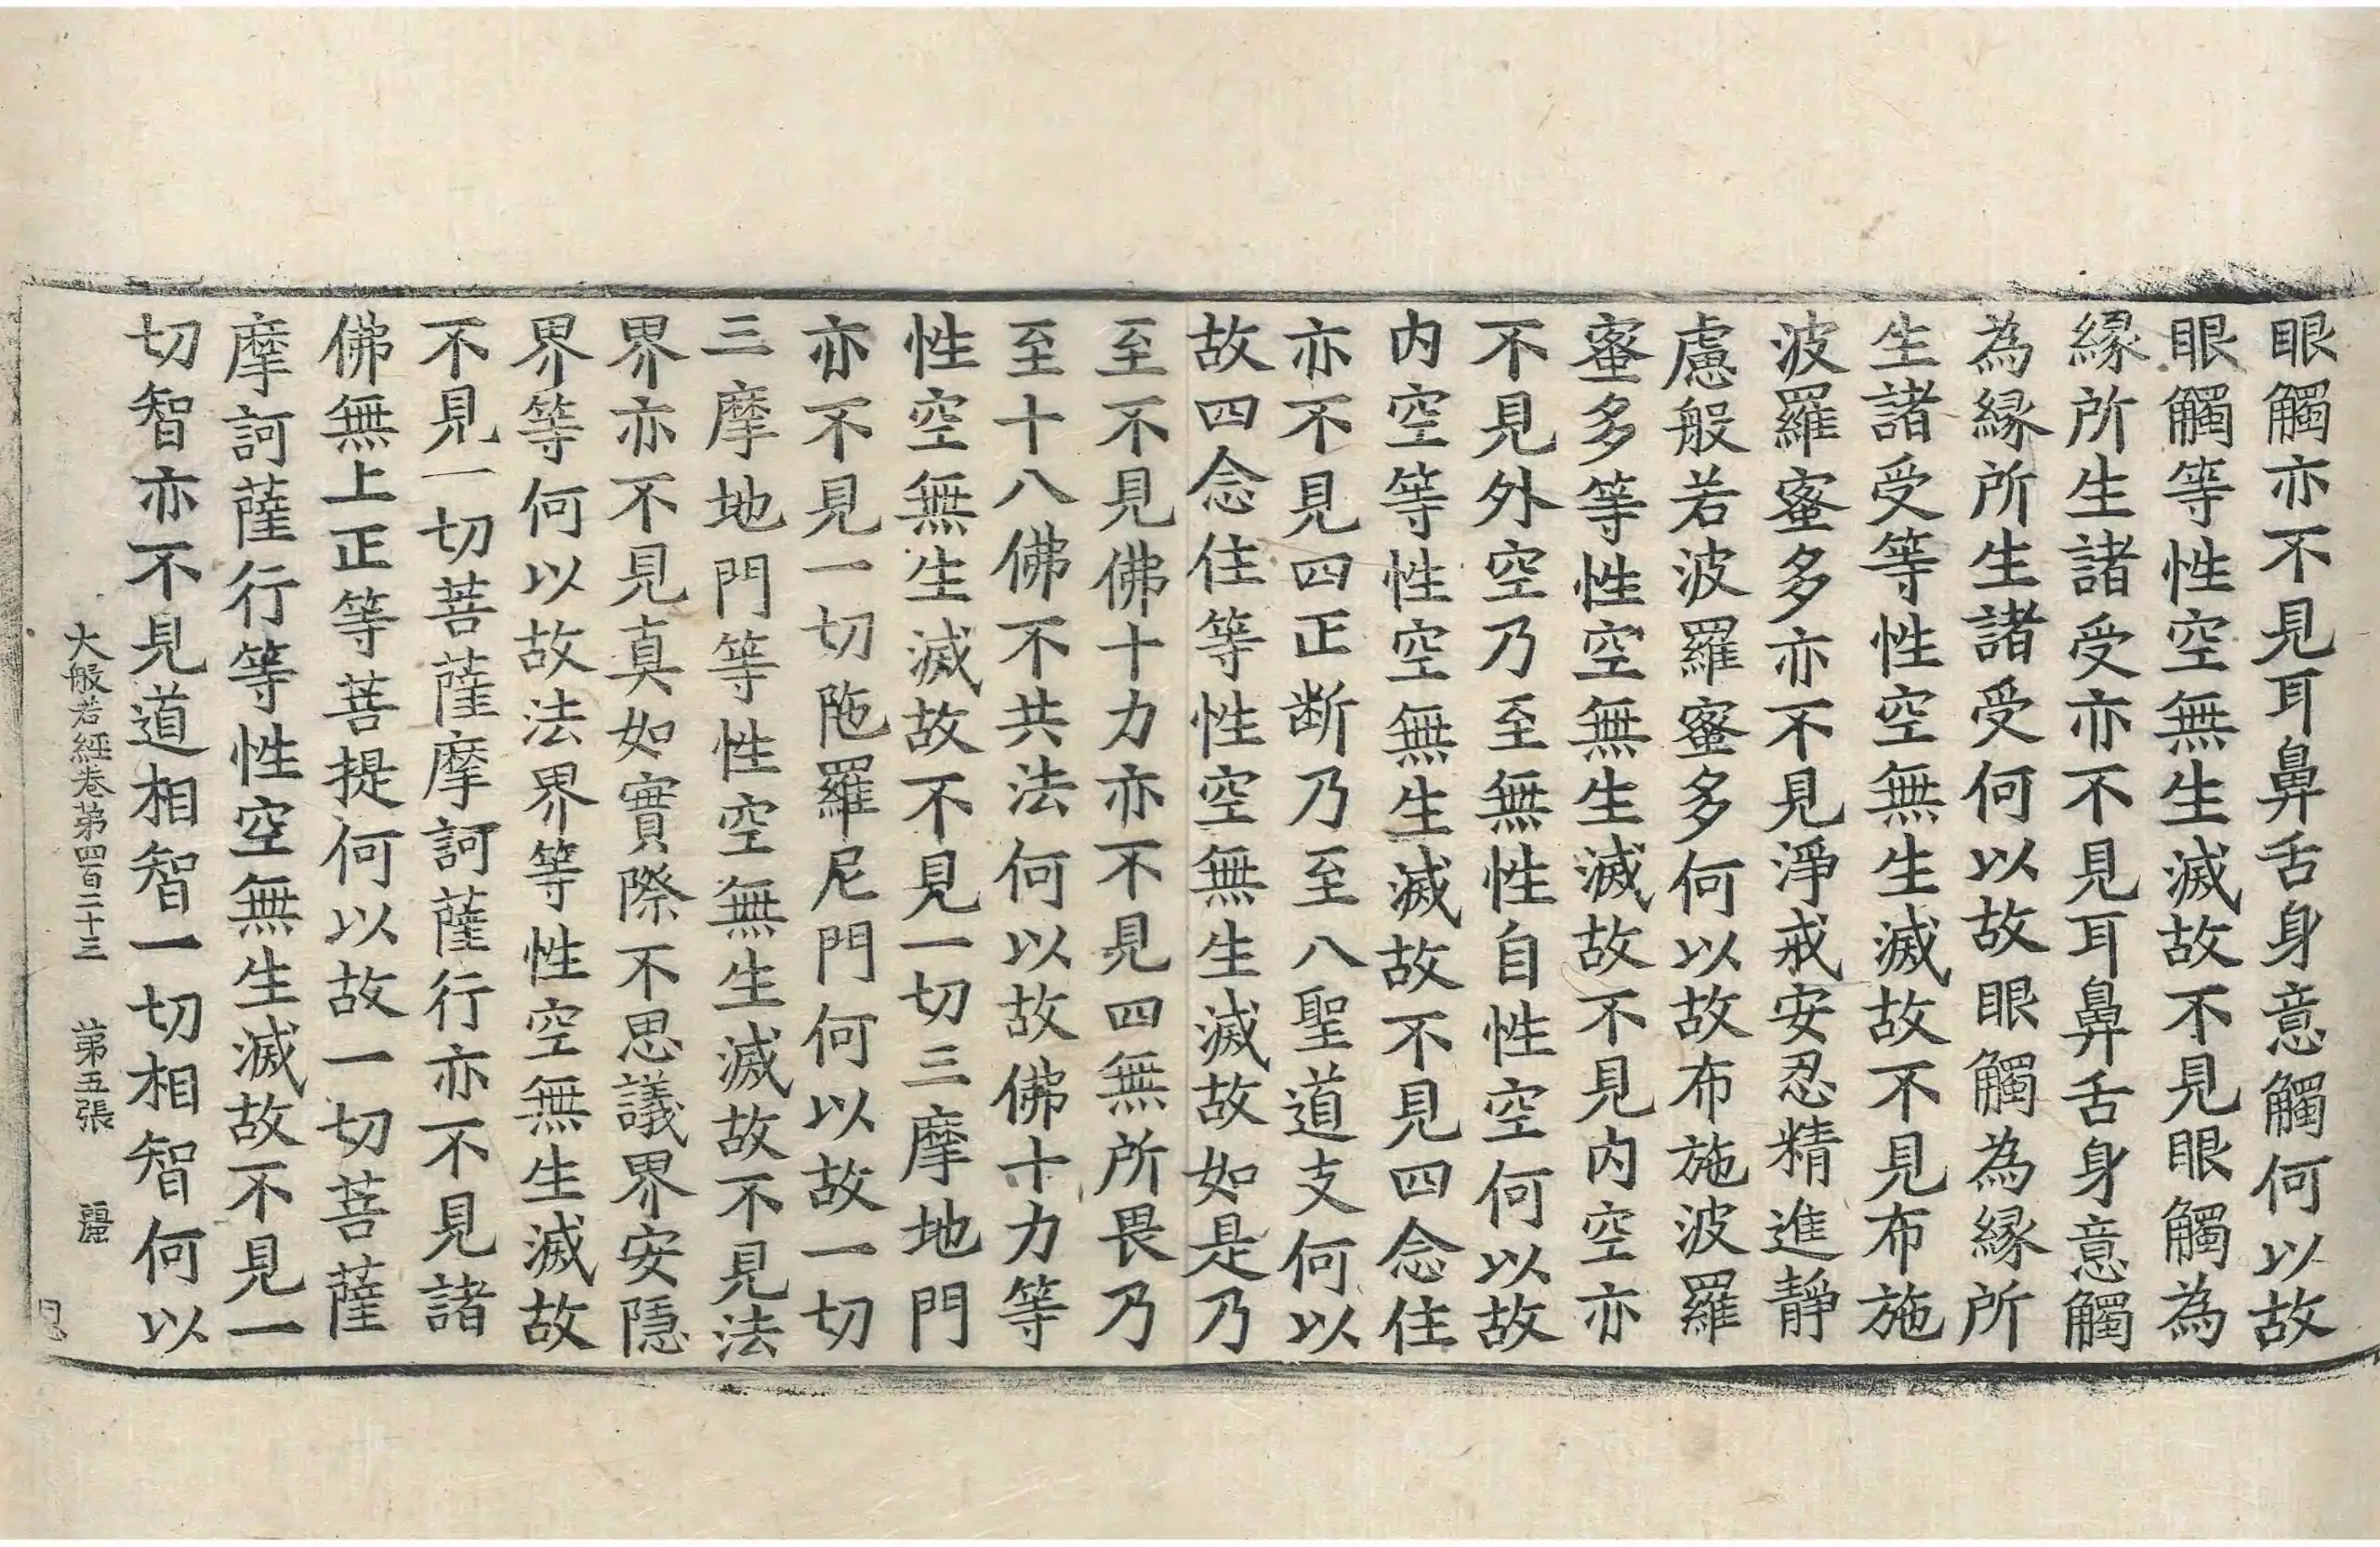 眼觸亦不見耳鼻舌身意觸何以故
眼觸等性空無生滅故不見眼觸為
緣所生諸受亦不見耳鼻舌身意觸
為緣所生諸受何以故眼觸為緣所
生諸受等性空無生滅故不見布施
波羅蜜多亦不見淨戒安忍精進靜
慮般若波羅蜜多何以故布施波羅
蜜多等性空無生滅故不見內空亦
不見外空乃至無性自性空何以故
內空等性空無生滅故不見四念住
亦不見四正斷乃至八聖道支何以
故四念住等性空無生滅故如是乃
至不見佛十力亦不見四無所畏乃
至十八佛不共法何以故佛十力等
性空無生滅故不見一切三摩地門
亦不見一切陁羅尼門何以故一切
三摩地門等性空無生滅故不見法
界亦不見真如實際不思議界安隱
界等何以故法界等性空無生滅故
不見一切菩薩摩訶薩行亦不見諸
佛無上正等菩提何以故一切菩薩
摩訶薩行等性空無生滅故不見一
切智亦不見道相智一切相智何以
大般若經卷第四百二十三 第五張 麗